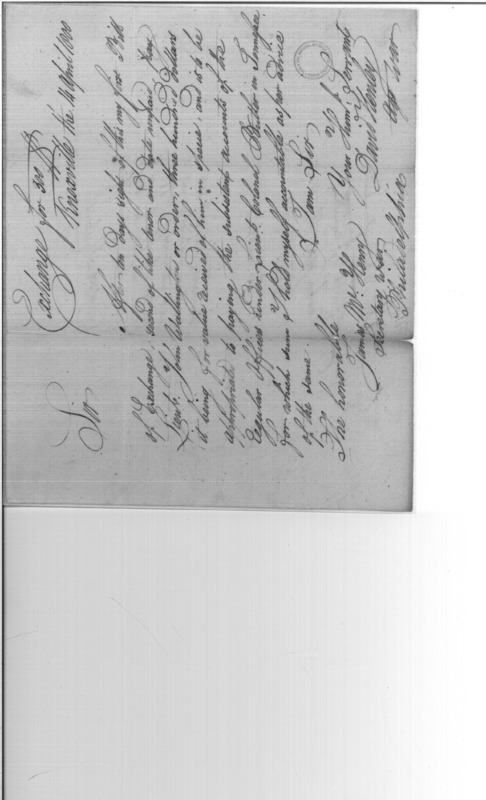 Exchange for 300 Ds
Knoxville the 14 April 1800
Sir
After ten days sight of this my first Bill
of Exchange second of the tenor and date unpaid pay
Lieut. John Wallington or order, three hundred dollars
it being for value received of him in specie, and is to be
appropriated to paying the subsistent accounts of the
regular Officers under Lieut. Colonel Butler in Tennessee
for which sum I hold myself accountable as per advice
of the same
I am Sir
The honorable
Your Huml. Servant
James McHenry
David Henley
Secretary War
Agt War
Philadelphia